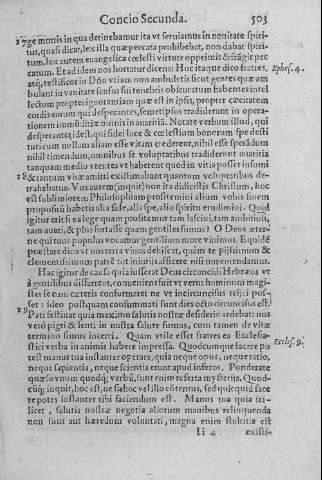 Concio Secunda. 503
17 ge mortis in qua detinebamur ita vt seruiamus in nouitate spiri-
tus, quasi dicat, lex illa quæ peccata prohibebat, non dabat spiri-
tum, lex autem euangelica cœlesti virtute opprimit & frãgit pec
catum. Et ad idem nos hortatur dicens: Hoc itaque dico fratres, Ephes. 4.
atq; testificor in Dño vt iam non ambuletis sicut gentes quæ am
bulant in vanitate sensus sui tenebris obscuratum habentes intel
lectum propter ignorantiam quæ est in ipsis, propter cæcitatem
cordis eorum qui desperantes, semetipsos tradiderunt in opera-
tionem immũditiæ omnis in auaritiã. Notate verbum illud, qui
desperantes, idest, qui fidei luce & cœlestium bonorum spe desti
tuti cum nullam aliam esse vitam crederent, nihil esse sperãdum
nihil timendum, omnibus se voluptatibus tradiderunt auaritia
tanquam medio vtentes vt haberent quod in vitia posset insumi
18 & tantum vitæ amitti existimabant quantum voluptatibus de-
trahebatur. Vos autem (inquit) non ita didicistis Christum, hoc
est sublimiorem Philosophiam profitemini alium vobis finem
propositũ habetis alia fide, alia spe, alio spiritu erudimini. Quid
igitur erit si ea lege quam profitemur tam lasciui, tam ambitiosi,
tam auari, & plus fortasse quam gentiles sumus? O Deus æter-
ne qui tuus populus vocamur gentilium more viuimus. Equidẽ
præstare dico vt nos terra viuos dehiscat, quàm te pijssimum &
clementissimum patrẽ tot iniurijs afficere nisi nos emendamus.
Hac igitur de causa quia iusserat Deus circuncidi Hebræos vt
à gentilibus different, conueniens fuit vt verus hominum magi-
ster se cum cæteris conformaret ne vt incircuncisus reijci pos-
set: ideo postquam consummati sunt dies octo circuncisus est.
19 Pati festinat quia maximo salutis nostræ desiderio ardebat: nos
verò pigri & lenti in nostra salute sumus, cum tamen de vitæ
termino simus incerti. Quam vtile esset fratres ea Ecclesia-
stici verba in animis habere impressa. Quodcumque facere po Eccles. 9.
test manus tua instanter operare, quia neque opus, neque ratio,
neque sapientia, neque scientia erunt apud inferos. Ponderate
quæso vnum quodq; verbũ, sunt enim referta mysterijs. Quod-
cũq; inquit, hoc est, ne sis hoc vel illo cõtentus, sed quicquid face
re potes instanter tibi faciendum est. Manus tua quia sci-
licet, salutis nostræ negotia aliorum manibus relinquenda
non sunt aut hæredum voluntati, magna enim stultitia est
Ii 4 existi-